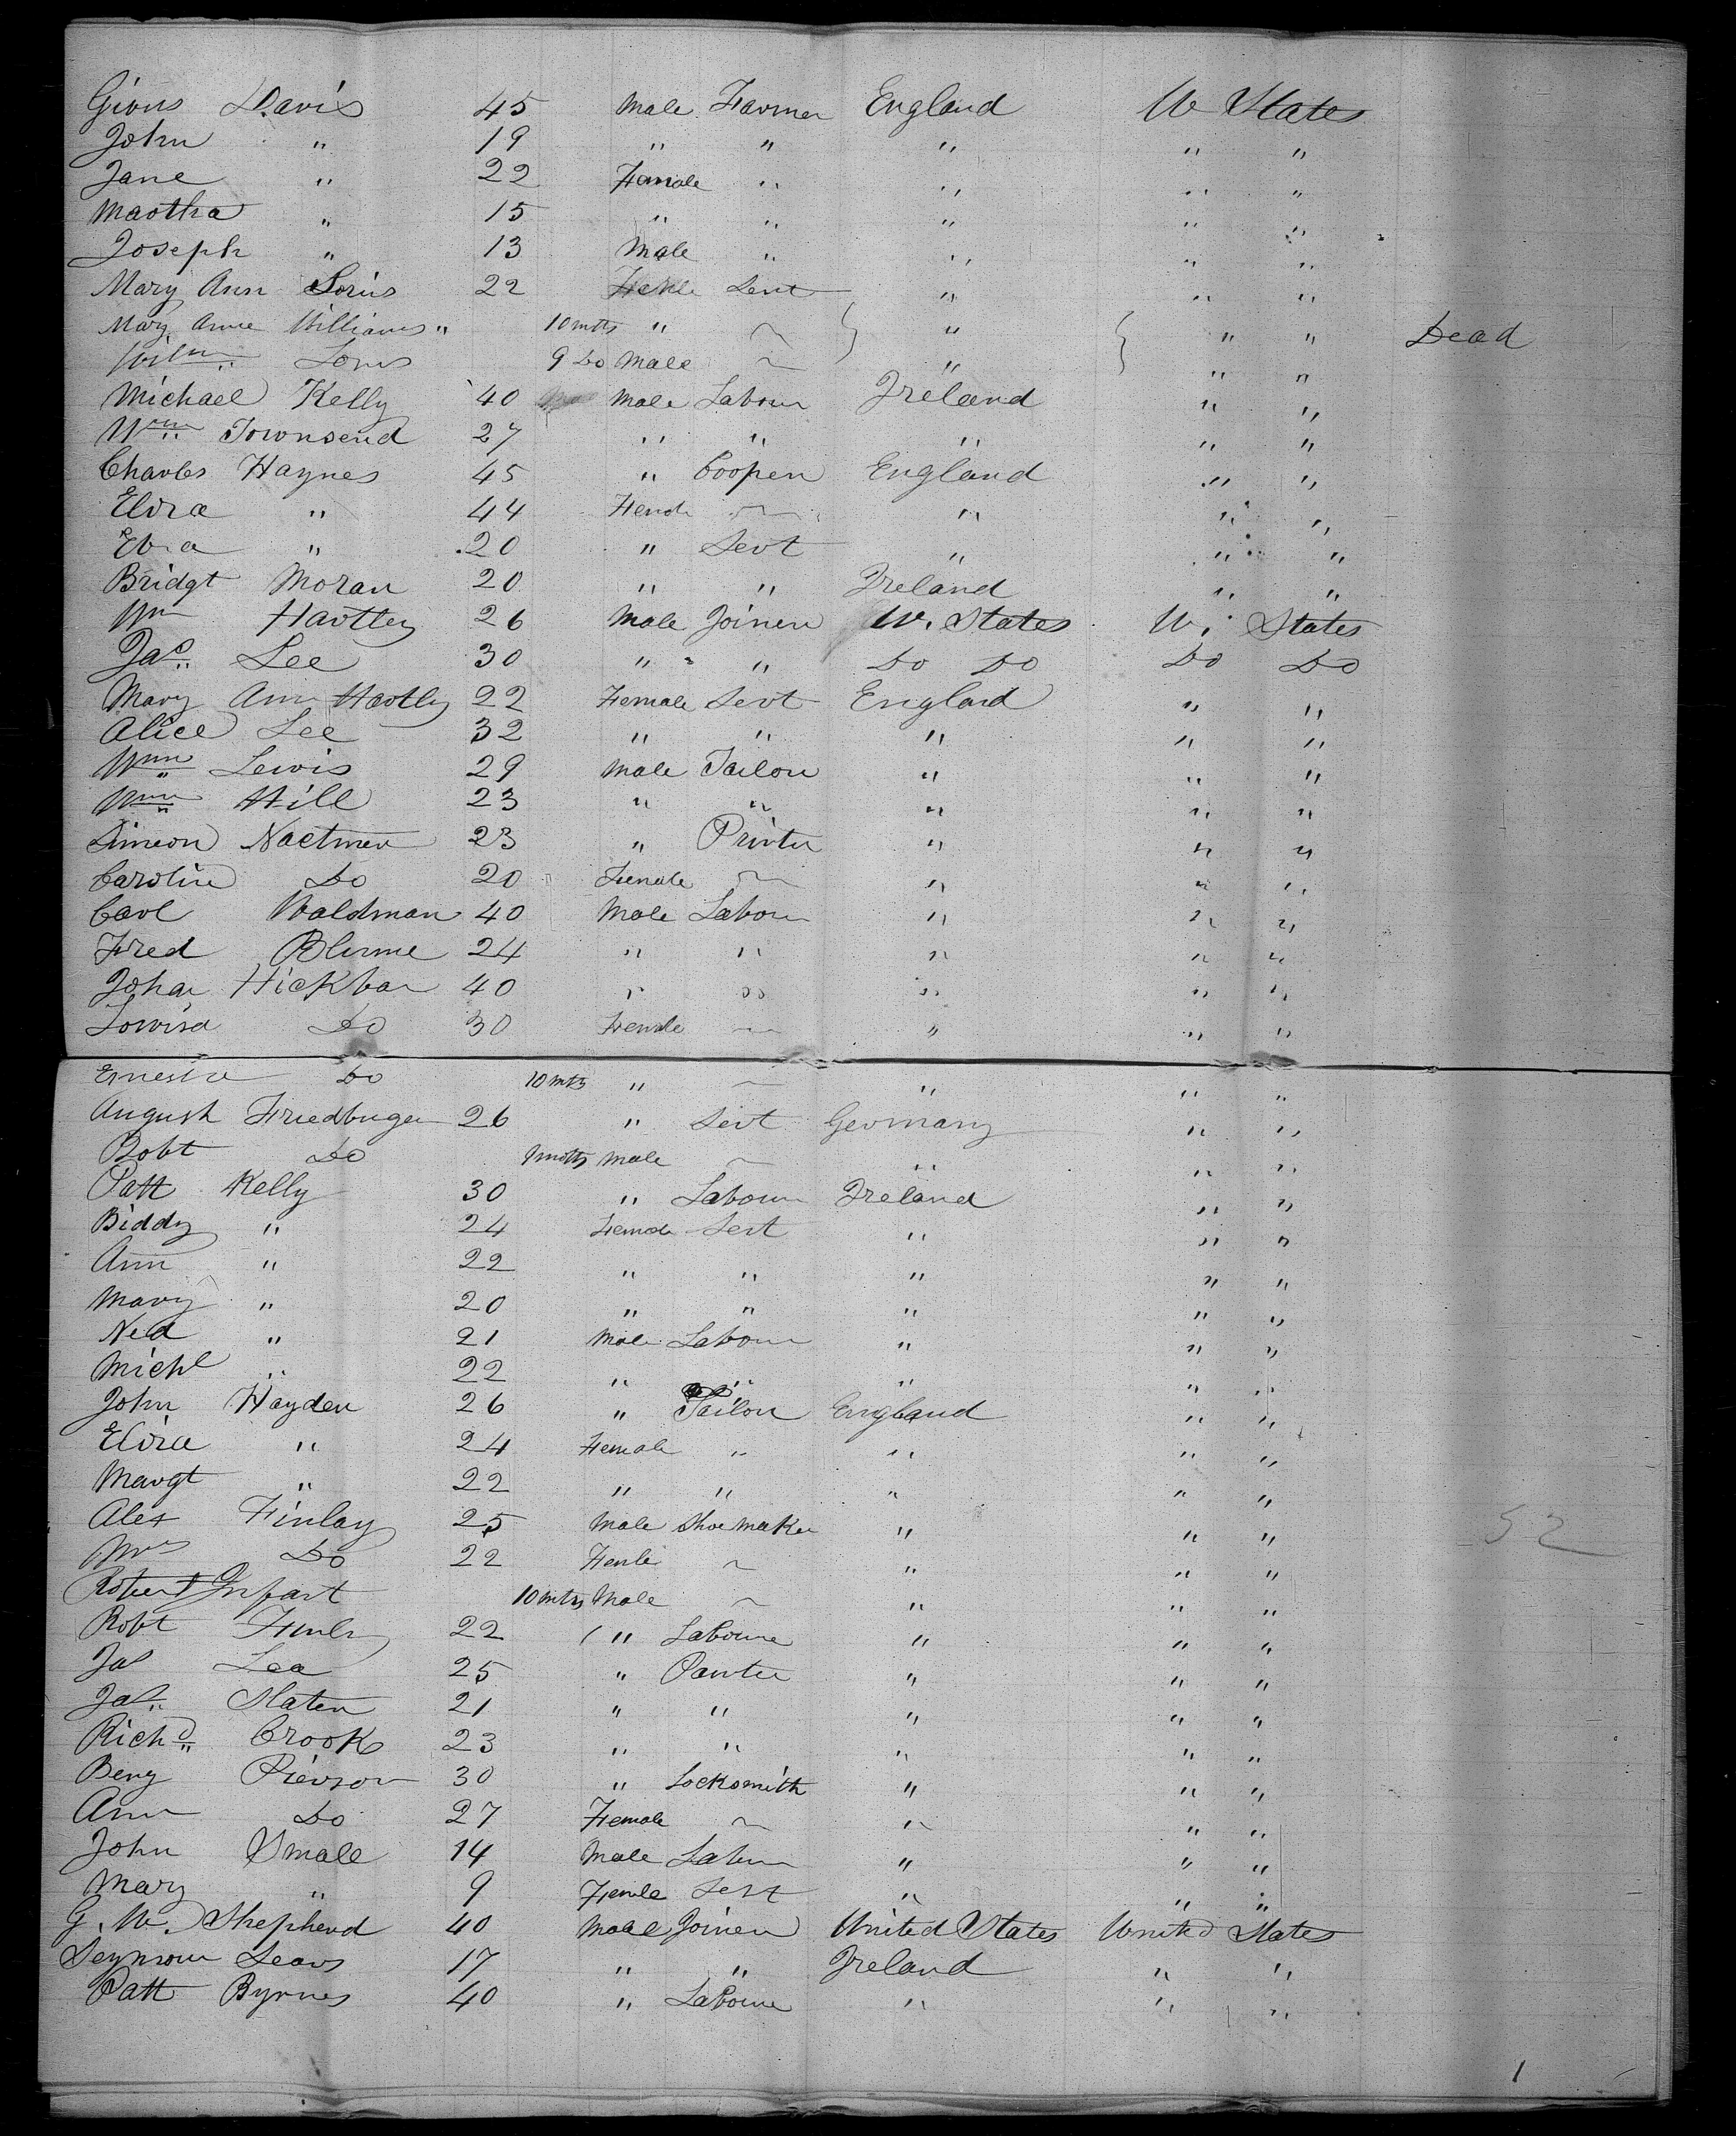 Givus Davis 45 Male Farmer England U States
John " 19 " " " " "
Jane " 22 Female " " " "
Martha " 15 " " " " "
Joseph " 13 Male " " " "
Mary Ann 22 Female Sert " " "
Mary Anne Williams " 10 mths " ~ " " " Dead
Wilm 9 Do Male ~ " " "
Michael Kelly 40 Male Labour Ireland " "
Wm Townsend 27 " " " " "
Charles Haynes 45 " Cooper England " "
Eliza " 44 Female ~ " " "
" 20 " Sevt " " "
Bridgt Moran 20 " " Ireland " "
Wm Hartley 26 Male Joiner U. States U. States
Jas Lee 30 " " Do Do Do Do
Mary Ann Hartley 22 Female Sevt England " "
Alice Lee 32 " " " " "
Wm Lewis 29 Male Tailor " " "
Wm Hill 23 " " " " "
Simeon 23 " Printer " " "
Caroline Do 20 Female ~ " " "
Carl Waldman 40 Male Labour " " "
Fred Blume 24 " " " " "
Johan 40 " " " " "
Lowisa Do 30 Female ~ " " "
Do 10 mths " ~ " " "
August Friedburger 26 " Sevt Germany " "
Robt Do 9 mths Male ~ " " "
Patt Kelly 30 " Labour Ireland " "
Biddy " 24 Female Sevt " " "
Ann " 22 " " " " "
Mary " 20 " " " " "
Ned " 21 Male Labour " " "
Michl " 22 " " " " "
John Hayden 26 " Tailor England " "
Eliza " 24 Female " " " "
Margt " 22 " " " " "
Alex Finlay 25 Male Shoemaker " " "
Mrs Do 22 Female ~ " " "
Robert Infant 10 mths Male ~ " " "
Robt 22 " Laboure " " "
Jas Lea 25 " " " "
Jas Slater 21 " " " " "
Richd Crook 23 " " " " "
Benj Pierson 30 " Locksmith " " "
Ann Do 27 Female ~ " " "
John Smale 14 Male Labour " " "
Mary " 9 Female Sert " " "
G. W. Shepherd 40 Male Joiner United States United States
Seymour 17 " " Ireland " "
Patt Byrnes 40 " Laboure " " "
52
1